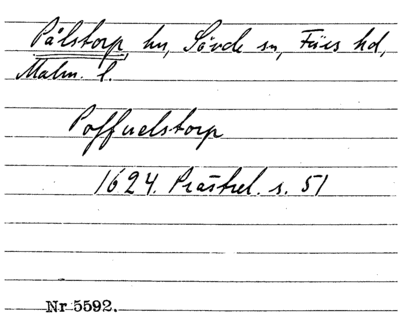 Pålstorp, hn, Sövde sn, Färs hd,
Malm. l.
Poffuelstorp
1624. Prästrel. s. 51
Nr 5592.